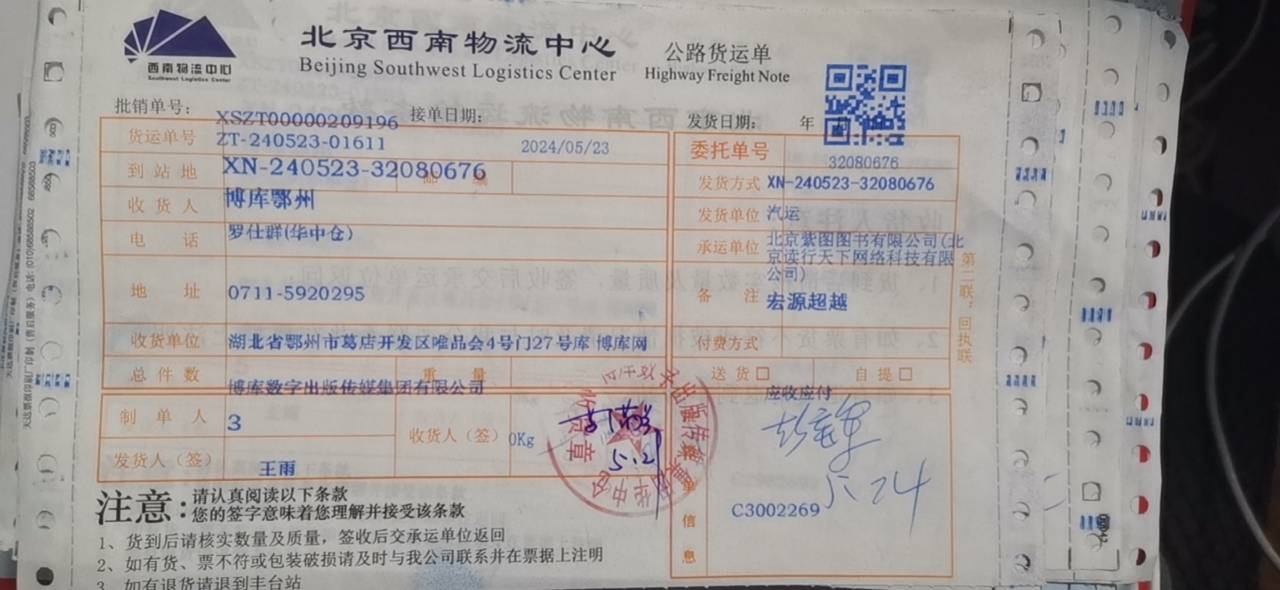 西南物流中心
Southwest Logistics Center
北京西南物流中心
Beijing Southwest Logistics Center
公路货运单
Highway Freight Note
批销单号:
XSZT00000209196
接单日期:
发货日期: 年
货运单号
ZT-240523-01611
2024/05/23
委托单号
32080676
到站地
XN-240523-32080676
发货方式
XN-240523-32080676
收货人
博库鄂州
发货单位
汽运
电话
罗仕群(华中仓)
承运单位
北京紫图图书有限公司(北
京读行天下网络科技有限
公司)
地址
0711-5920295
备注
宏源超越
收货单位
湖北省鄂州市葛店开发区唯品会4号门27号库 博库网
付费方式
总件数
博库数字出版传媒集团有限公司
重量
送货☐ 自提☐
应收应付
制单人
3
收货人(签)
0Kg
5.2
发货人(签)
王雨
5.24
C3002269
单
信
息
第二联:回执联
注意:
请认真阅读以下条款
您的签字意味着您理解并接受该条款
1、货到后请核实数量及质量,签收后交承运单位返回
2、如有货、票不符或包装破损请及时与我公司联系并在票据上注明
3、如有退货请退到丰台站